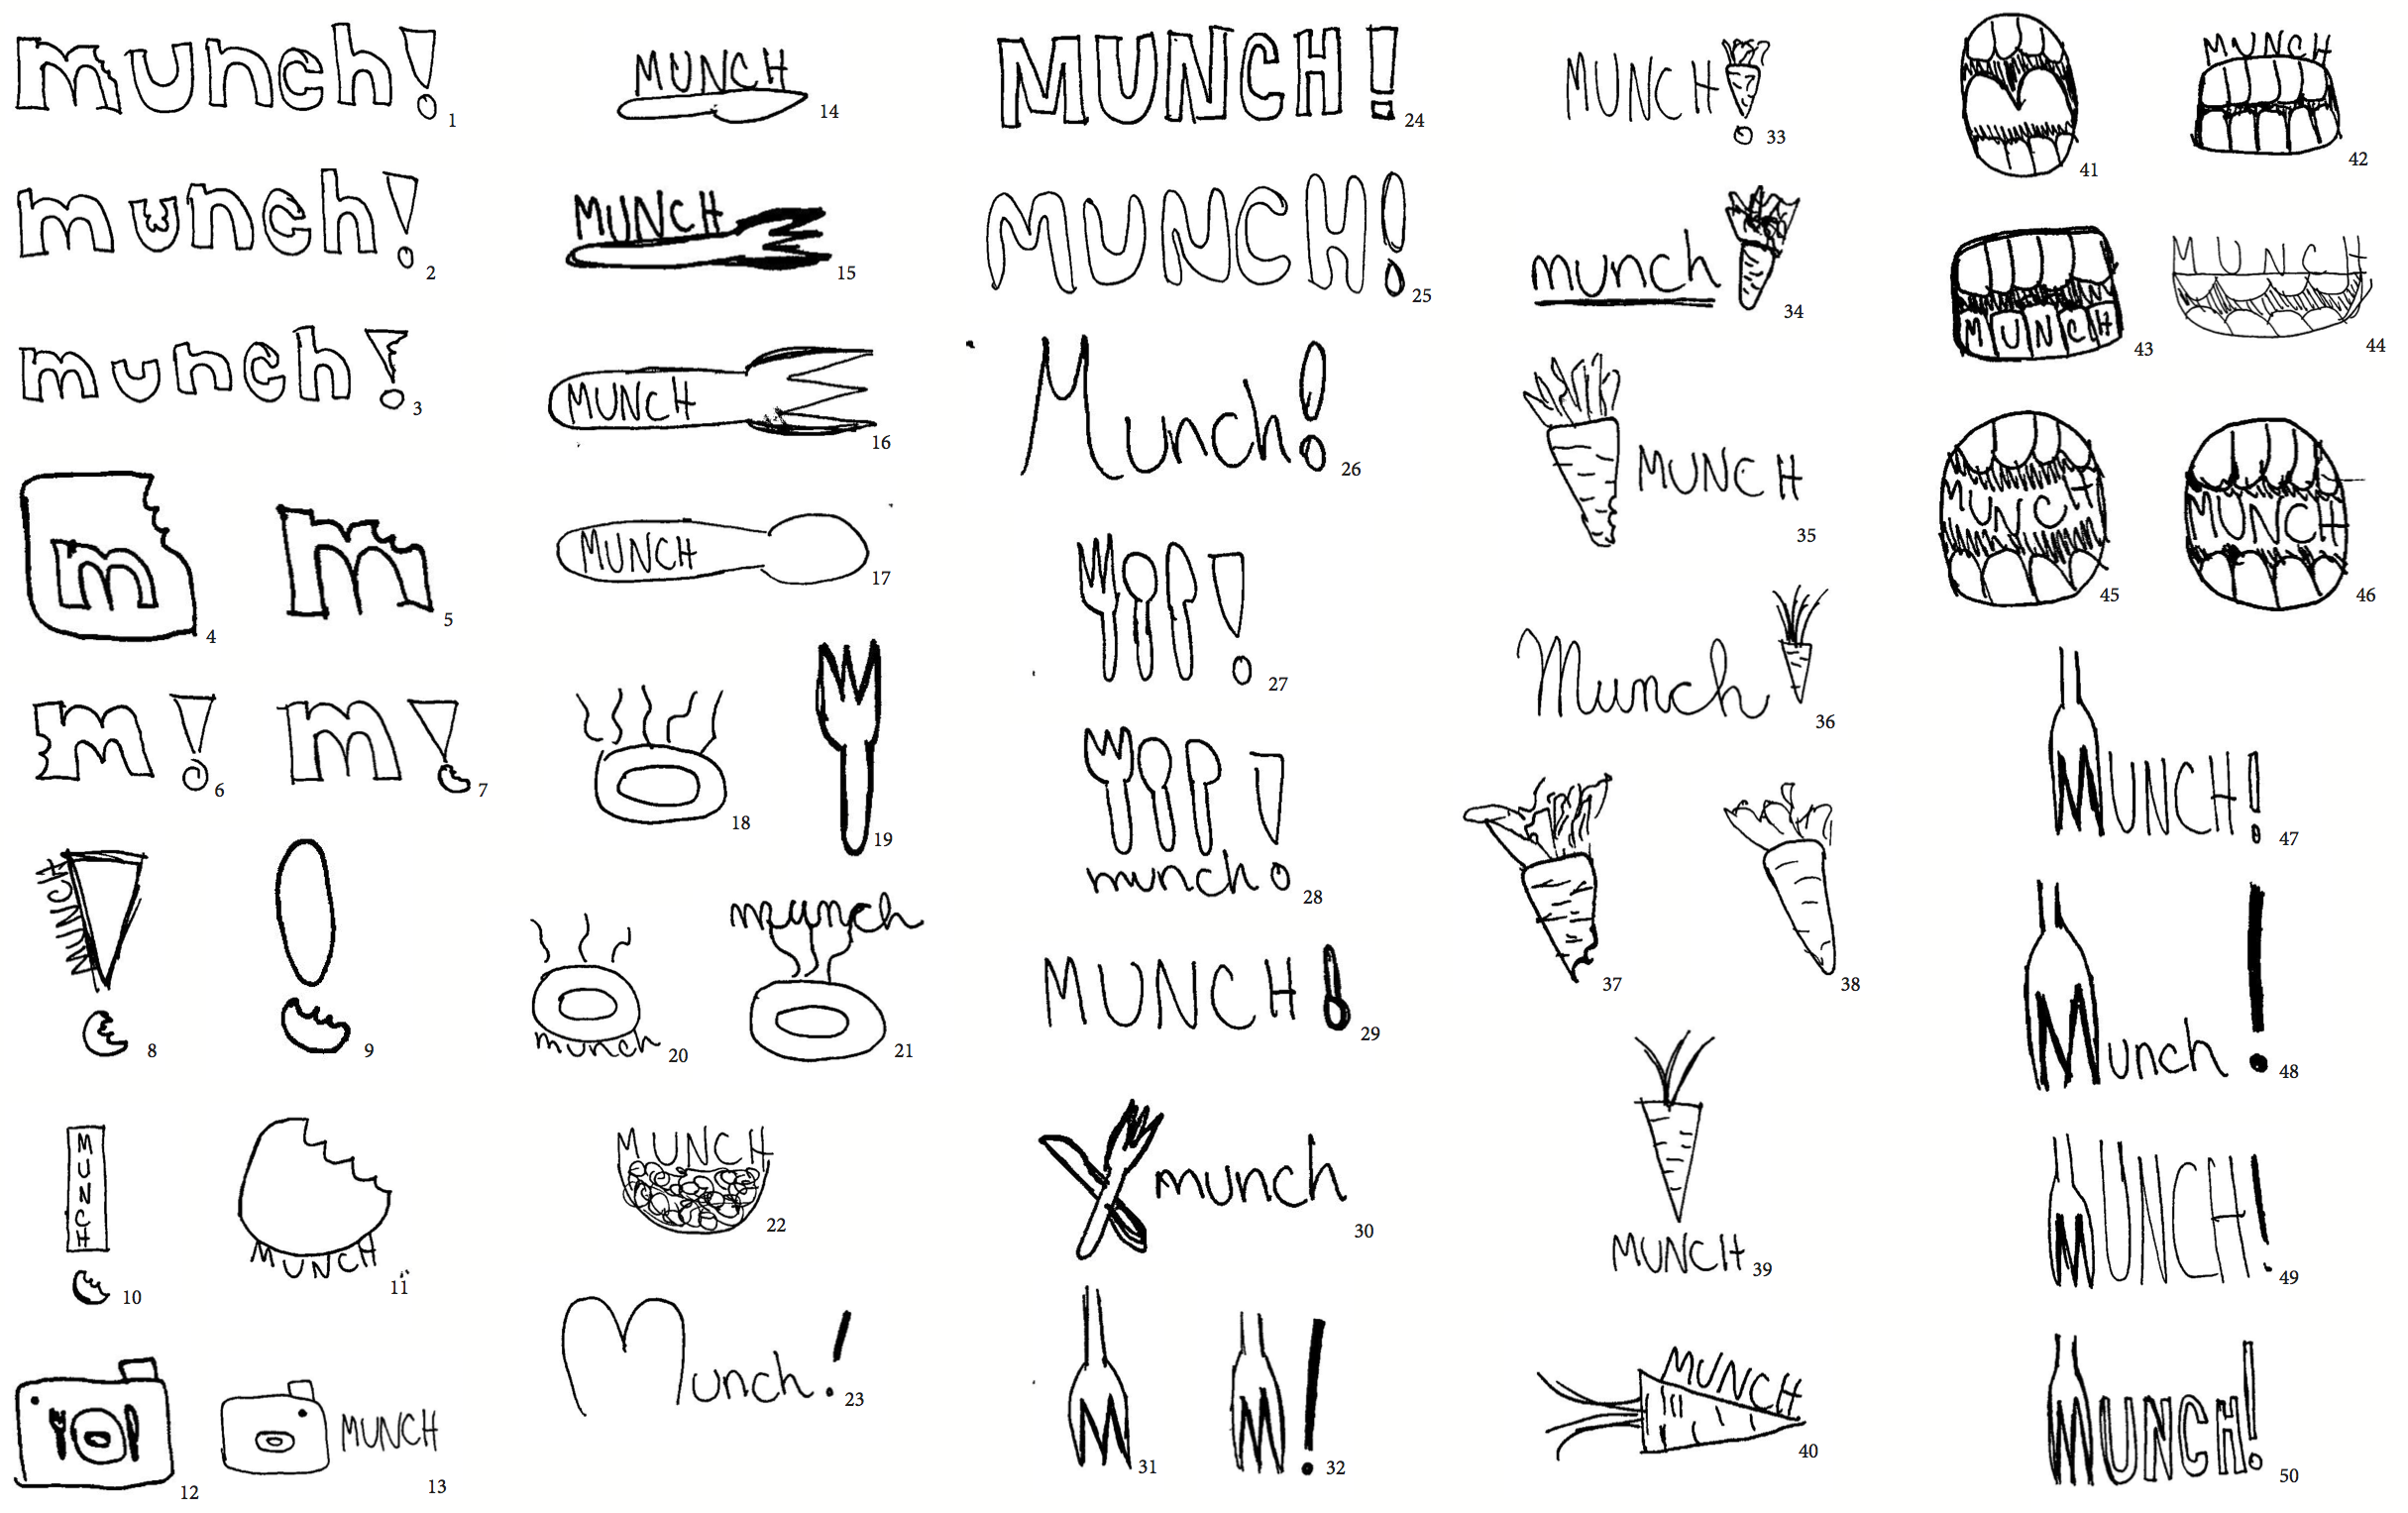 munch!
1
munch!
2
munch!
3
m
4
m
5
m!
6
m!
7
MUNCH
8
!
9
MUNCH
10
MUNCH
11
12
MUNCH
13
MUNCH
14
MUNCH
15
MUNCH
16
MUNCH
17
18
19
munch
20
munch
21
MUNCH
22
Munch!
23
MUNCH!
24
MUNCH!
25
Munch!
26
!
27
munch
28
MUNCH!
29
munch
30
M
31
M!
32
MUNCH
33
munch
34
MUNCH
35
Munch
36
37
38
MUNCH
39
MUNCH
40
41
MUNCH
42
MUNCH
43
MUNCH
44
MUNCH
45
MUNCH
46
MUNCH!
47
Munch!
48
MUNCH!
49
MUNCH!
50